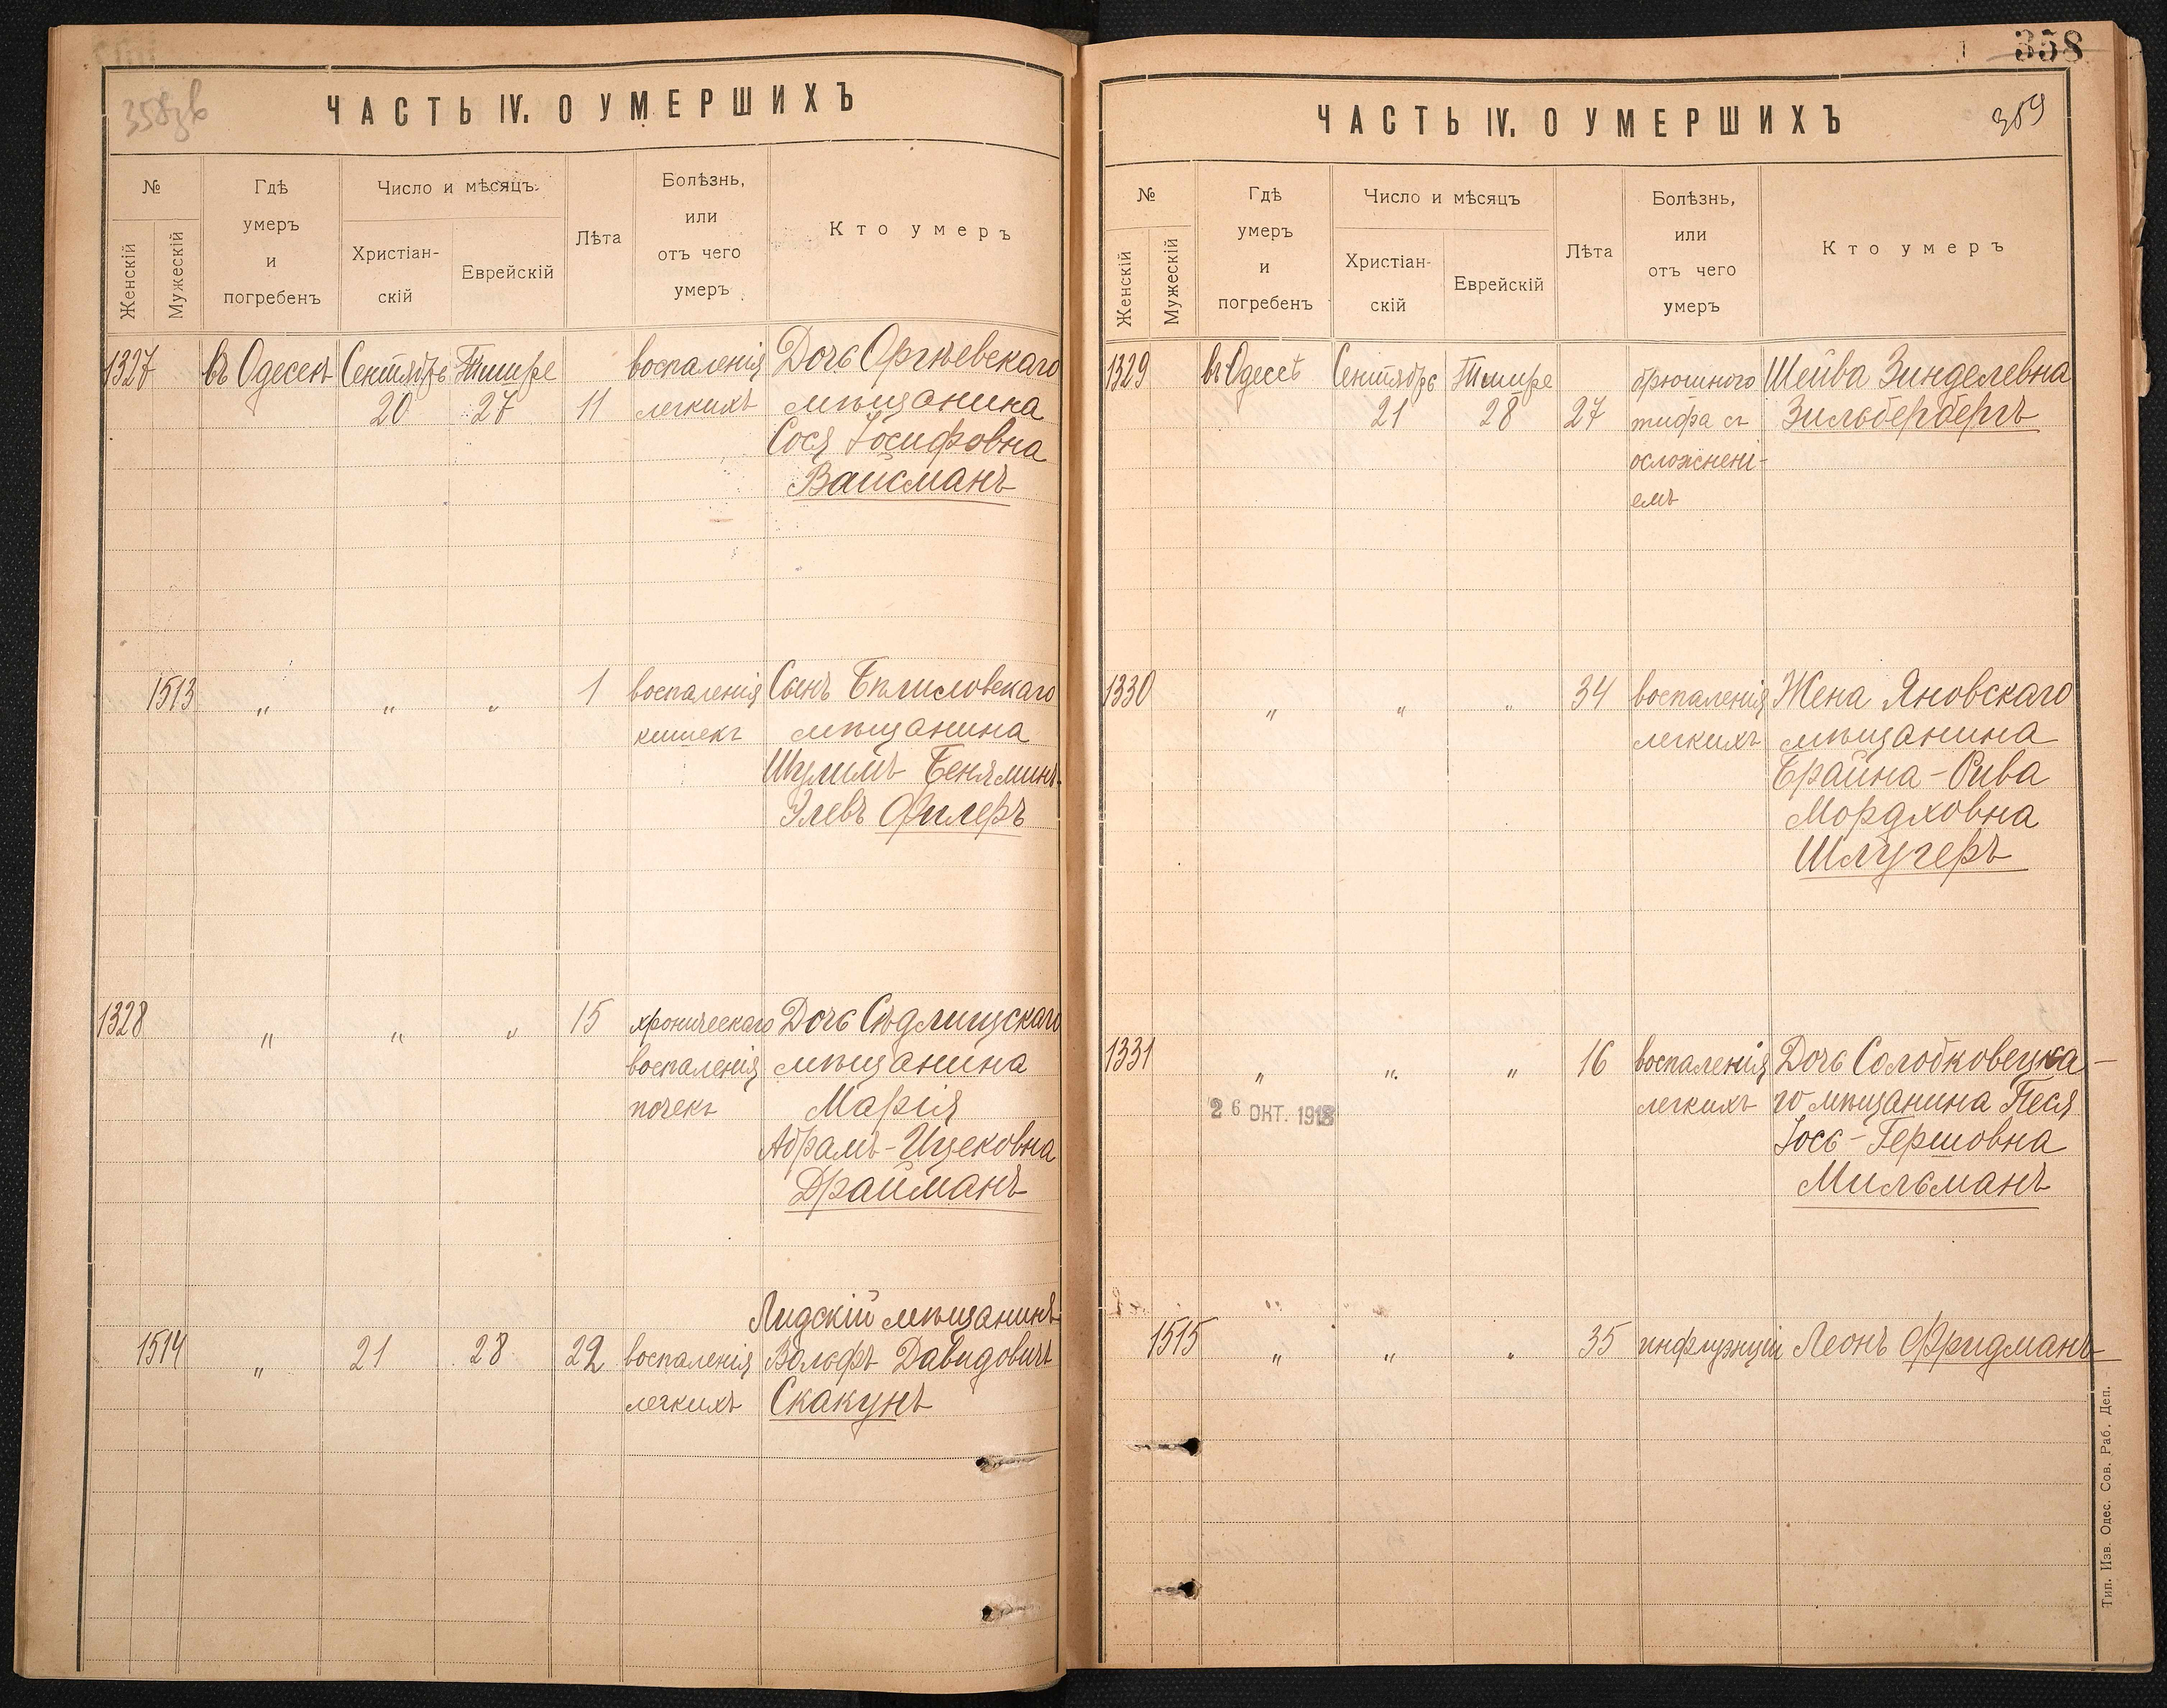 358
ЧАСТЬ IV. О УМЕРШИХЪ
№
Женскій
Мужескій
Гдѣ
умеръ
и
погребенъ
Число и мѣсяцъ.
Христіан-
скій
Еврейскій
Лѣта
Болѣзнь,
или
отъ чего
умеръ
Кто умеръ
1327
въ Одессѣ
Сентябрь
20
Тишре
27
11
воспаленія
легкихъ
Дочь Оргѣевскаго
мѣщанина
Сося Іосифовна
Вайсманъ
1513
"
"
"
1
воспаленія
кишекъ
Сынъ
мѣщанина
Шулимъ Беняминъ-
Элевъ Филеръ
1328
"
"
"
15
хроническаго
воспаленія
почекъ
Дочь Сѣдлищскаго
мѣщанина
Марія
Абрамъ-Ицековна
Драйманъ
1514
"
21
28
22
воспаленія
легкихъ
Лидскій мѣщанинъ
Вольфъ Давидовичъ
Скакунъ
358
ЧАСТЬ IV. О УМЕРШИХЪ
359
№
Женскій
Мужескій
Гдѣ
умеръ
и
погребенъ
Число и мѣсяцъ
Христіан-
скій
Еврейскій
Лѣта
Болѣзнь,
или
отъ чего
умеръ
Кто умеръ
1329
въ Одессѣ
Сентябрь
21
Тишре
28
27
брюшного
тифа съ
осложнені-
емъ
Шейва Зинделевна
Зильбербергъ
1330
"
"
"
34
воспаленія
легкихъ
Жена Яновскаго
мѣщанина
Брайна-Рива
Мордховна
Шлугеръ
1331
"
"
"
16
воспаленія
легкихъ
Дочь Солобковецка-
го мѣщанина Песя
Іось-Гершовна
Мильманъ
26 ОКТ. 1918
1515
"
"
"
35
инфлуэнціи
Леонъ Фридманъ
Тип. Изв. Одес. Сов. Раб. Деп.